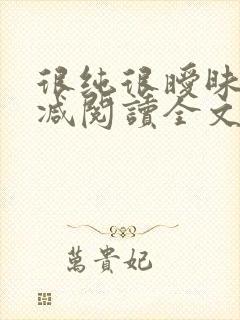 很純很曖昧
減閱讀全文
萬貴妃